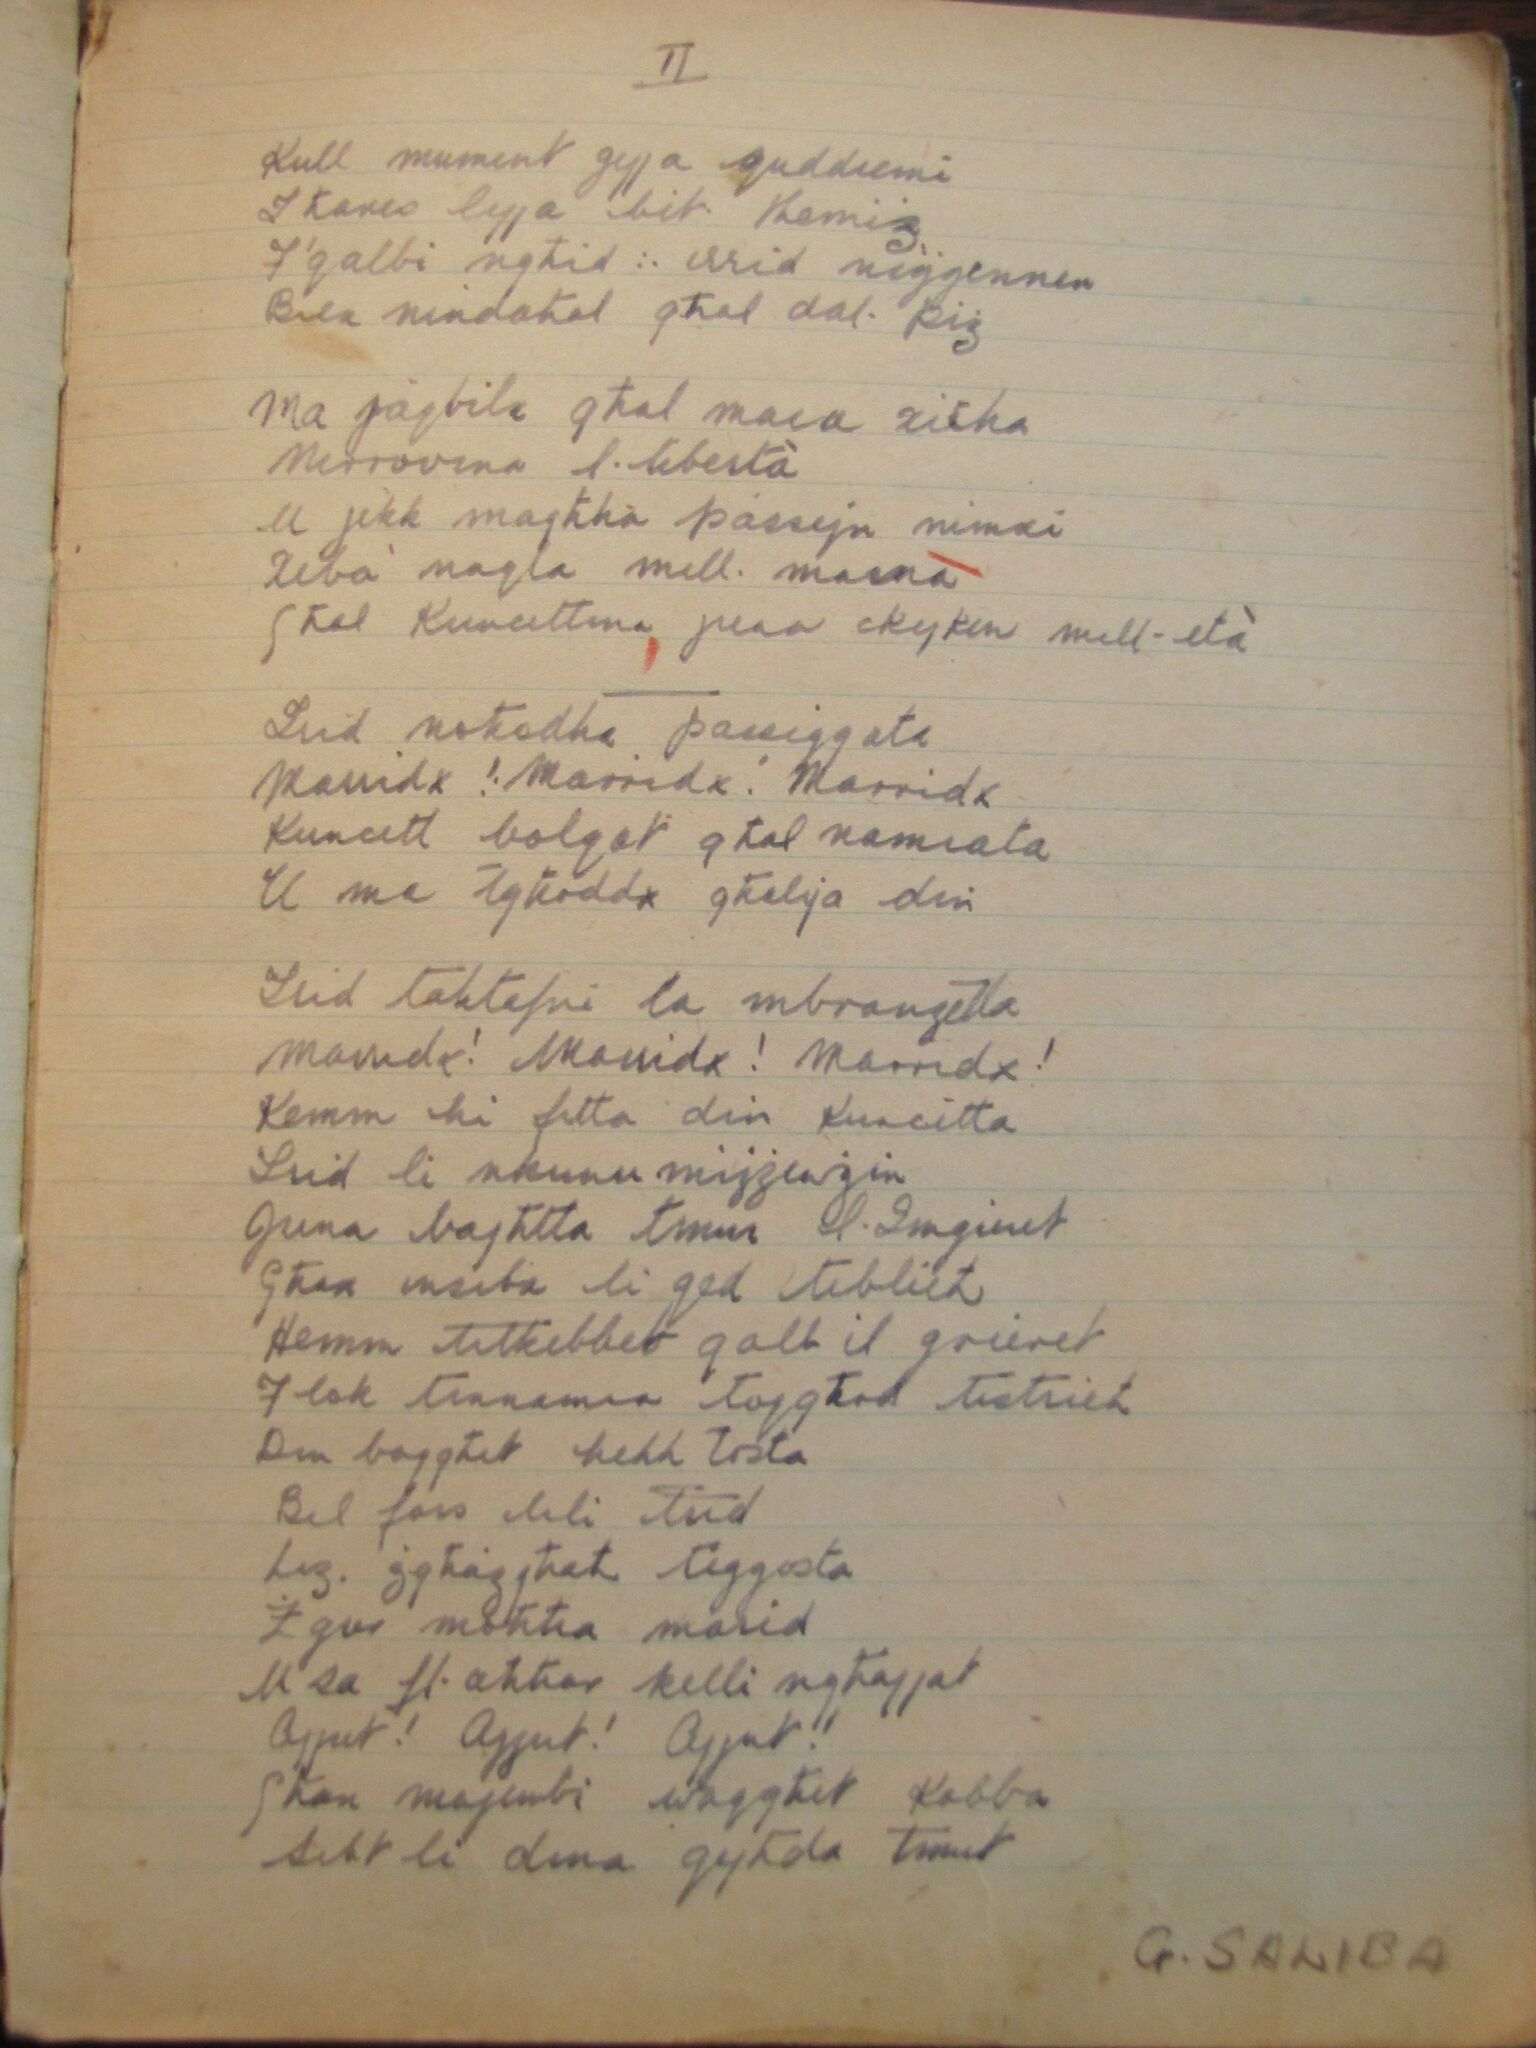 II
Kull mument gejja quddiemi
Tħares lejja bit. Kemiż
F'qalbi ngħid :. irrid niġġennen
Biex nindaħal għal dal. Piż
Ma jaqbilx għal mara żiċħa
Nirrovina l. libertà
U jekk magħha passejn nimxi
Żebà naqla mill. marna
Għal Kuncettina, jiena ckejken mill-età
Irid noħodha passiggata
Marridx !. Marridx ! Marridx
Kuncett bolqot għal namrata
U ma tgħoddx għalija din
Irid taħtafni la mbrangetta
Marridx! Marridx! Marridx!
Kemm hi fitta din Kuncitta
Irid li nkunu miżżewġin
Jiena bagħtta tmur l-Imġieret
Għax insiba li qed tibliet
Hemm titkebbes qalb il qrieret
F lok tinnamra toqgħod tistrieħ
Din baqgħet hekk tosta
Bil fors lili trid
Liż. żgħażgħah tiggosta
Żgur moħħha marid
U sa fl-aħħar kelli ngħajjat
Ajjut! Ajjut! Ajjut!
Għax majembi waqgħet Kobba
Sibt li dina qegħda tmut
G. SALIBA